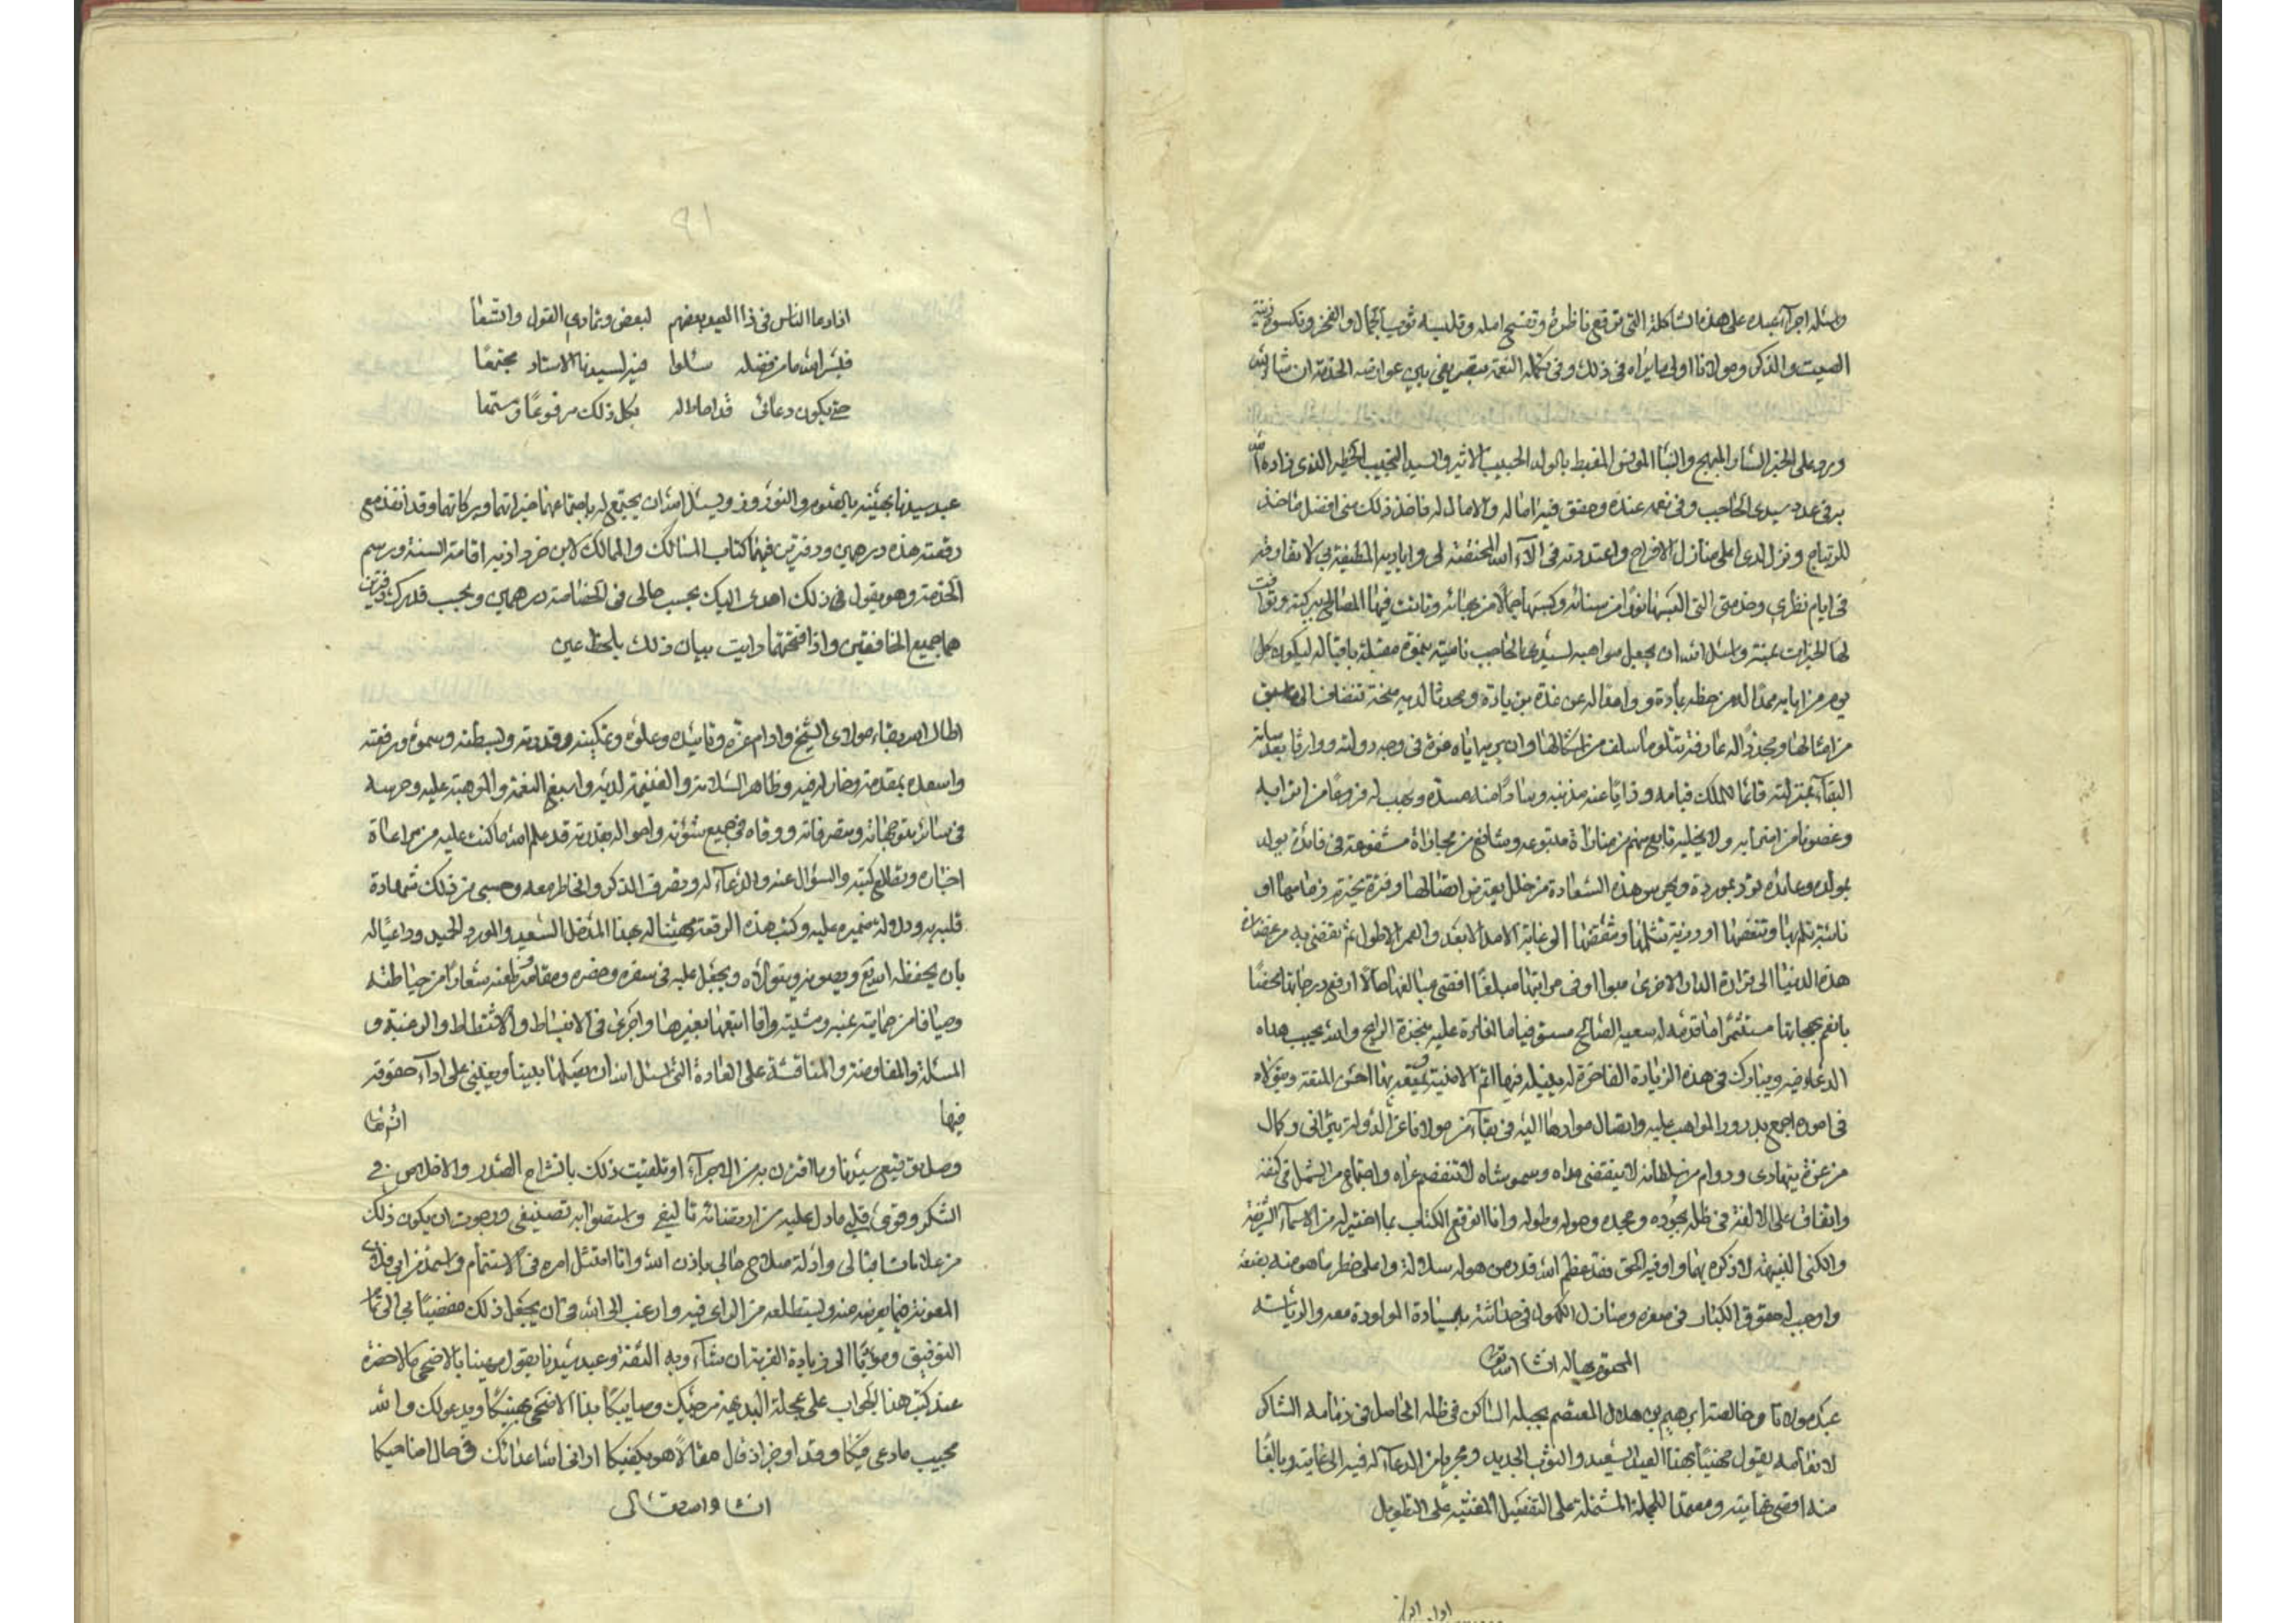 واسئله اجرآء عبده على هذه الشاكلة التي تقع ناظره وتفسح امله وتلبسه ثوب الجمال والفخر وتكسوه زينة
الصيت والذكر ومولانا اولى ما يراه في ذلك وفي تكملة النعمة بتصريفي بين عوارض الخدمة ان شا الله
ورد على الخبر السار المبهج والنبأ المونق المغبط بالولد الحبيب الاثير والسيد النجيب الخطير الذي زاده الله
في عدد سيدي الحاجب وفي نعمه عنده وحقق فيه اماله والامال له فاخذ ذلك مني افضل ماخذ
للارتياح ونزل لدي اعلى منازل الافراح واعتددته في الآء الله المختصة لي واياديه المطيفة بي
في ايام نظري وخدمتي التي البسها نورا من سنائه وكسبها جمالا من بهائه وتأتت فيها المصالح ببركته وتوافت
لها الخيرات عنه واسئل الله ان يجعل مواهبه لسيدي الحاجب نامية مقبلة باقباله ليكون كل
يوم من ايامه ممدا له من حظه بمادة ووافدا له عن غده بزيادة ومحدثا لديه منحة تنضاف الى ما سبق
من امثالها ومجددا له عارفة تتلو ما سلف من اشكالها وان يريه اياه غرة في وجه دولته ووارثا بعد
البقآء بمنزلته قائما للملك قيامه وذابا عنه مذبه وسادا منه مسده ويهب له فروعا من اترابه
وغصونا من
بمولده وعائدة تؤد بمورده ويحرس هذه السعادة من خلل يعترض اتصالها وفترة تخترم نظامها او
تثلمها وتنقصها الى غاية الامد الابعد والعمر الاطول ثم يفضي به من غضارة
هذه الدنيا الى قرارة الدار الاخرى مبوا اوفى مراتبها مبلغا اقصى مبالغها حالا ارفع درجاتها
بانعم مستثمرا ما قدمه له سعيه الصالح والله يجيب هذا
الدعاء فيه ويبارك في هذه الزيادة الفاخرة له ويبلغه فيها اتم الامنية ويمتعه بها احسن المتعة ويتولاه
في اموره اجمع بدرور المواهب عليه واتصال موادها اليه في بقآء من مولانا عز الدولة وكمال
من عزه يتهادى ودوام من سلطانه لا ينقضي مداه وسمو شأنه لا تنفصم عراه واجتماع من الشمل في كنفه
واتفاق على الالفة في ظله بجوده ومجده وحوله وطوله وانا اتوقع الكتاب بما اختير له من الاسمآء الشريفة
والكنى النبيهة لاذكره بها واوفيه الحق فقد عظم الله قدر من هو له سلالة واعلى خطر ما هو منه بضعة
واوجب له حقوق الكبار في صغره ومنازل الكهول في حداثته بالسيادة المولودة معه والرياسة
المعقودة له ان شا الله تعالى
عبد مولانا وخالصته ابرهيم بن هلال المعتصم بحبله الساكن في ظله الحاصل في ذمامه الشاكر
لانعامه يقول مهنيا بهذا العيد السعيد والثوب الجديد ومجريا من الدعآء له فيه الى غايته وبالغا
منه اقصى نهايته ومعتمدا للجملة المشتملة على التفصيل المغنية على التطويل
اذا دعا الناس في ذا العيد بعضهم لبعض وتمادي القول واتسعا
فبشر الله ما من فضله سئلوا فيه لسيدنا الاستاد مجتمعا
حتى يكون دعائي قد احاط له بكل ذلك مرفوعا ومستمعا
عبد سيدنا يهنئه بالقدوم والنوروز ويسئل الله ان يجمع له باجتماعهما خيراتهما وبركاتهما وقد انفذ مع
رقعته هذه درهمين ودفترين فيهما كتاب المسالك والممالك لابن خرداذبه اقامة لسنة ورسم
الخدمة وهو يقول في ذلك اهدى اليك بحسب حالي في الخصاصة درهمين وبحسب قدرك دفترين
هما جميع الخافقين واذا فتحتهما رايت بيان ذلك بلحظ عين
اطال الله بقاء مولاى الشيخ وادام عزه وتاييده وعلوه وتمكينه وقدرته وبسطته وسموه ورفعته
واسعده بمقدمه وخار له فيه وظاهر السلامة والغنيمة لديه واسبغ النعمة والموهبة عليه وحرسه
في سائر متوجهاته ومتصرفاته ووقاه في جميع شؤنه واحواله بقدرته قد علم الله ما كنت عليه من مراعاة
اخباره وتطلع كتبه والسؤال عنه والدعآء له وتصرف الذكر والخاطر معه وحسبي من ذلك شهادة
قلبه به ودلالة ضميره عليه وكتبت هذه الرقعة مهنئا له بهذا المدخل السعيد والمورد الحميد وداعيا له
بان يحفظه الله تع ويصونه ويتولاه ويجعل عليه في سفره وحضره ومقامه وظعنه شعارا من حياطته
وصيانة من حمايته عنه ومشيته وانا اتبعها بغيرها واجرى في الانبساط والاختلاط والرغبة و
المسئلة والمفاوضة والمناقشة على العادة التي اسئل الله ان يصلها بيننا ويعينني على ادآء حقوقه
فيها ان شا
وصل توقيع سيدنا وما اقترن به من الاجرآء وتلقيت ذلك بانشراح الصدر والاخلاص في
الشكر ووقع في قلبي ما دل عليه من ارتضائه تاليفي واستصوابه تصنيفي ورجوت ان يكون ذلك
من علامات اقبالي وادلة صلاح حالي باذن الله وانا امتثل امره في الاستتمام واستمد من
المعونة فيما يعرضه منه ويستطلعه من الراى فيه وارغب الى الله في ان يجعل ذلك مفضيا بي الى
التوفيق ومؤديا الى زيادة القربة ان شآء وبه الثقة وعبد سيدنا يقول مهنيا بالاضحى
عند كتبه هذا الجواب على عجلة البديهة
مجيب ما دعى فيكا وقد اوجز اذ قال مقالا هو يكفيكا اراني الله اعدائك في حال اضاحيكا
ان شا الله تعالى